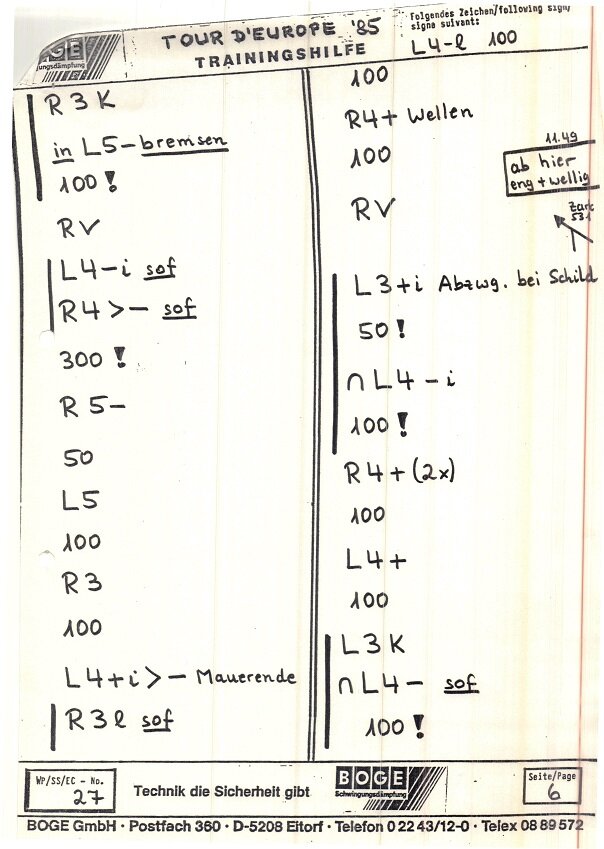 BOGE
ungsdämpfung
TOUR D'EUROPE '85
TRAININGSHILFE
folgendes Zeichen/following sign/
signe suivant:
L4-l 100
R3K
in L5-bremsen
100!
RV
L4-i sof
R4>- sof
300!
R5-
50
L5
100
R3
100
L4+i>- Mauerende
R3l sof
100
R4+ Wellen
100
RV
11.49
ab hier
eng+wellig
L3+i Abzwg. bei Schild
50!
∩L4-i
100!
R4+(2x)
100
L4+
100
L3K
∩L4- sof
100!
WP/SS/EC - No.
27
Technik die Sicherheit gibt
BOGE
Schwingungsdämpfung
Seite/Page
6
BOGE GmbH · Postfach 360 · D-5208 Eitorf · Telefon 0 22 43/12-0 · Telex 08 89 572